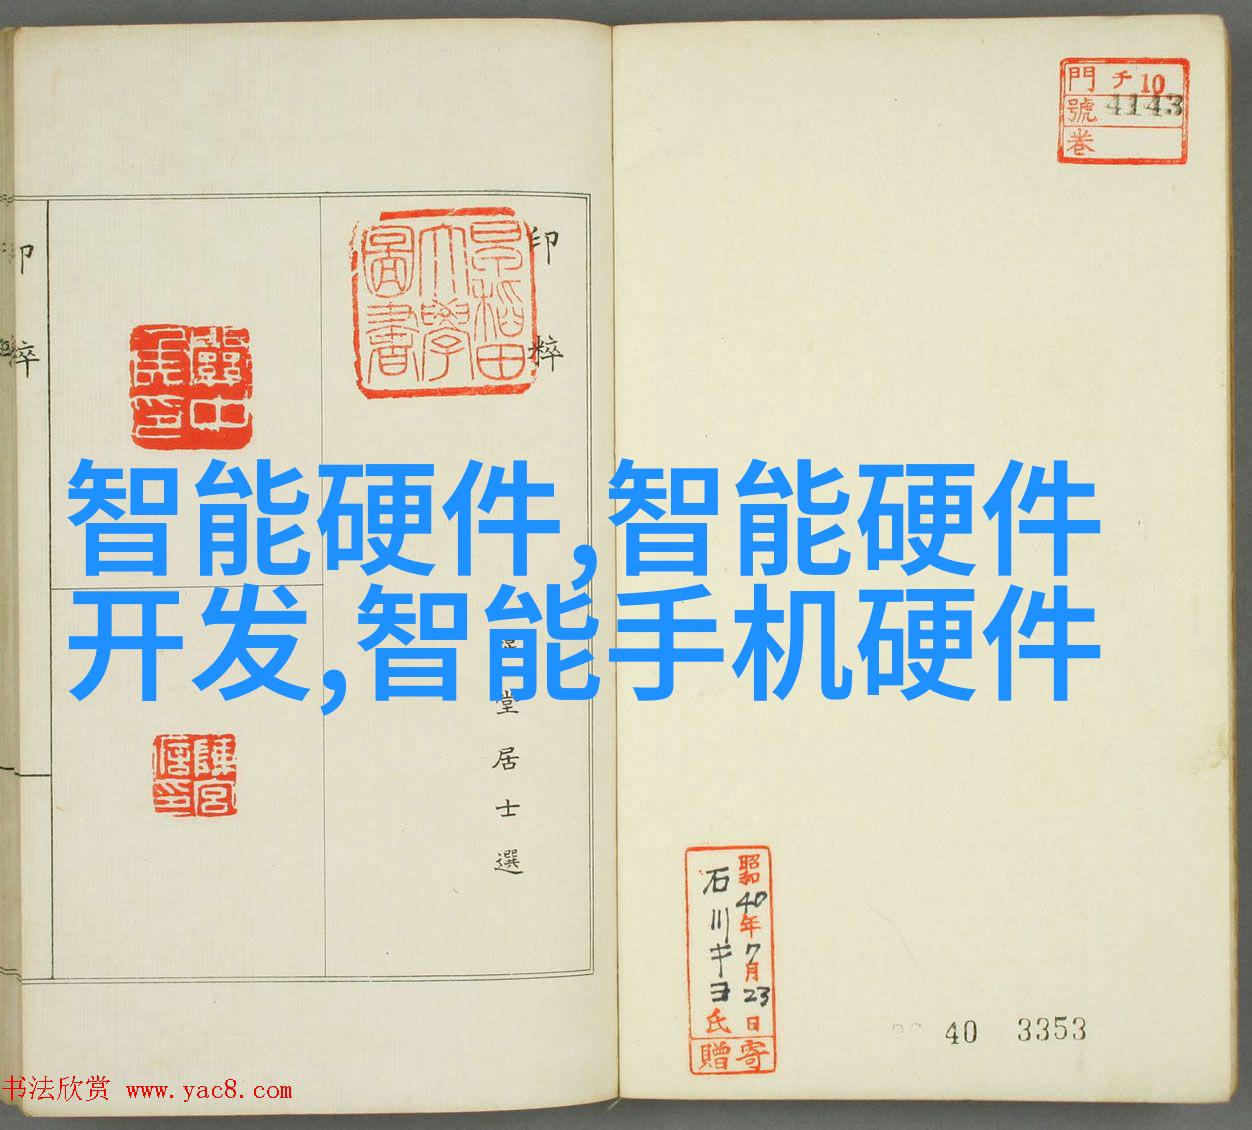 智能硬件,智能硬件
开发,智能手机硬件
門 チ 10
號 4143
卷
印粹
早稻田
大學
圖書
堂居士選
印粹
昭和40年7月23日
石川キヨ氏
寄贈
40 3353
书法欣赏 www.yac8.com